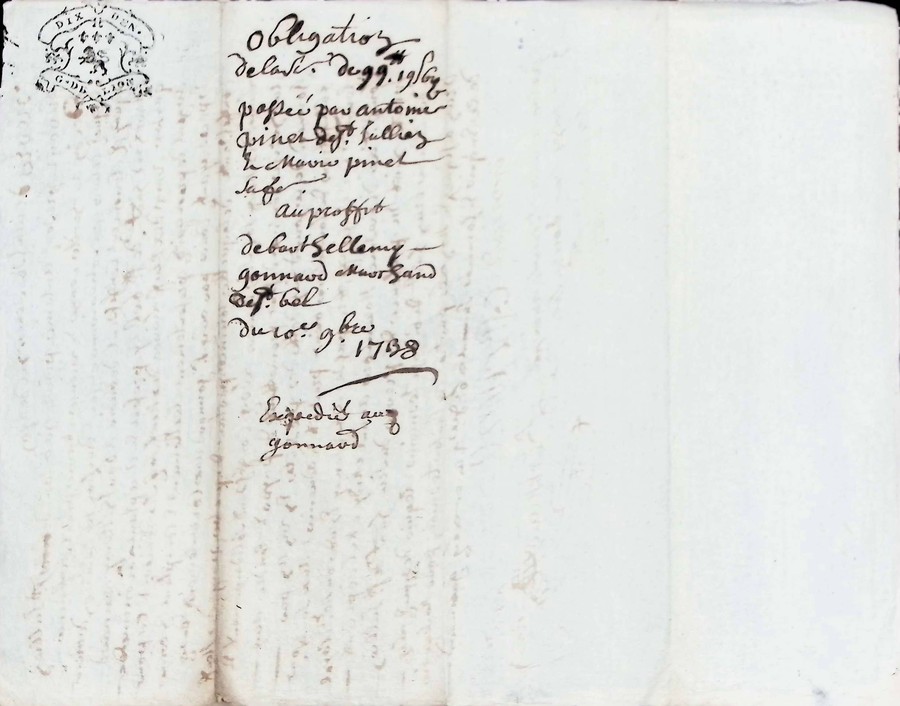 DIX DEN.
G. DE LION
Obligation
de la se. de 99tt 19s 6d
passée par antoine
pinet de st. Jullien
& Marie pinet
sa fe.
au proffit
de barthellemy
gonnard Marchand
de st. bel
du 10e. 9bre
1738
Expediée au
gonnard